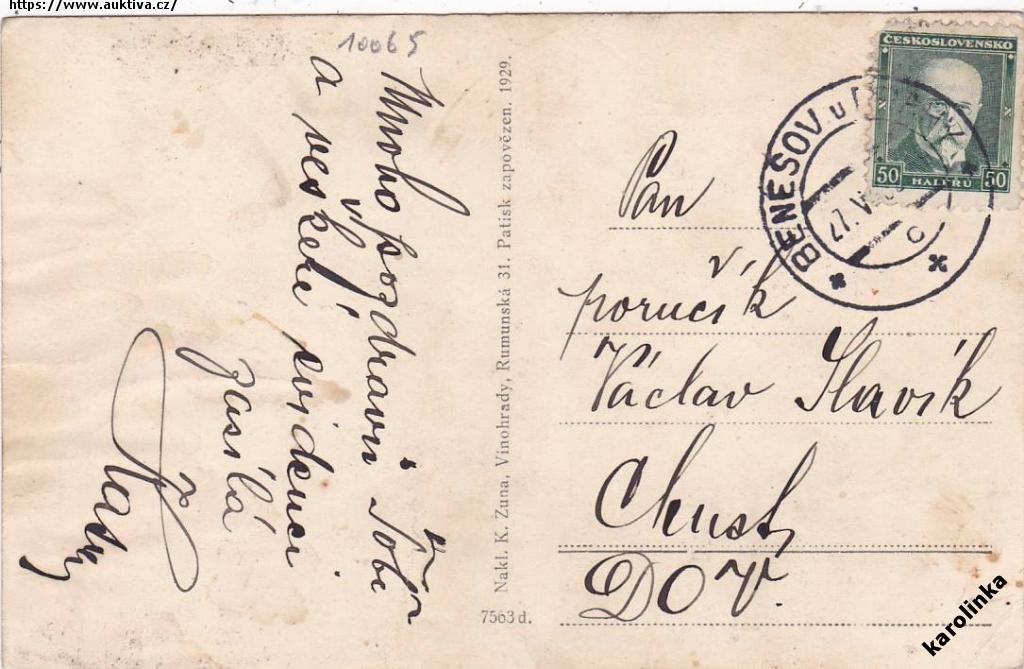 https://www.auktiva.cz/
10065
Mnoho pozdravů Tobě
a veškeré evidenci
zasílá
Nakl. K. Zuna, Vinohrady, Rumunská 31. Patisk zapovězen. 1929.
7563 d.
ČESKOSLOVENSKO
50 HALÉŘŮ 50
BENEŠOV u PRAHY
27. V
c
Pan
poručík
Václav Slavík
Chust,
DOV.
karolinka